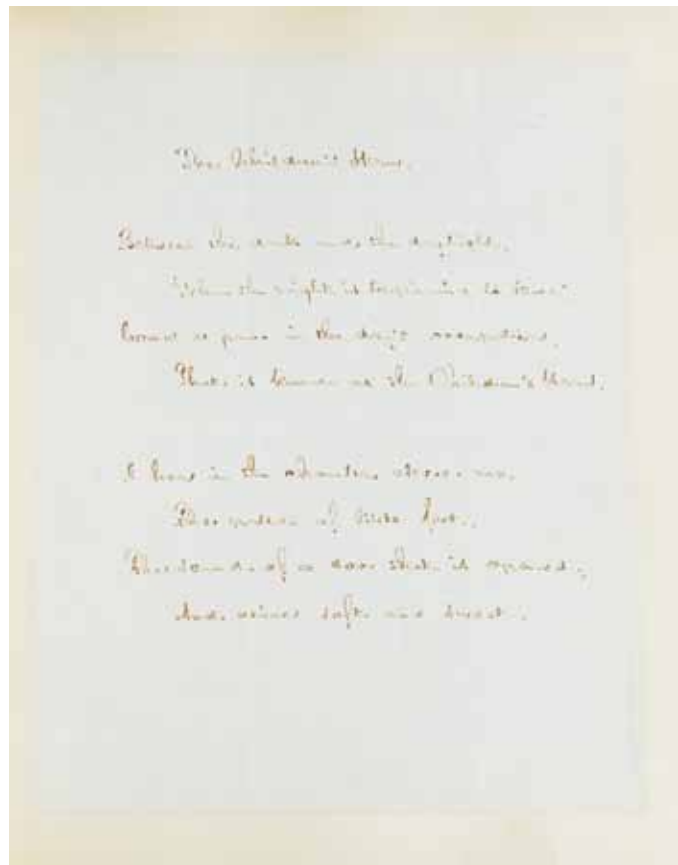 The Children's Hour.
Between the dark and the daylight,
When the night is beginning to lower,
Comes a pause in the day's occupations,
That is known as the Children's Hour.
I hear in the chamber above me
The patter of little feet,
The sound of a door that is opened,
And voices soft and sweet.